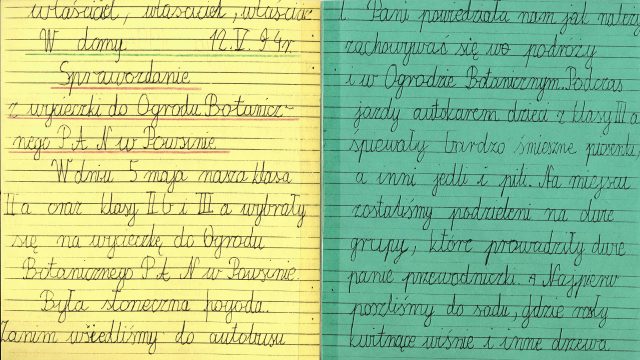 właściciel, właściciel, właścic
W domu 12.V.94r.
Sprawozdanie
z wycieczki do Ogrodu Botanicz-
nego P.A.N w Powsinie
W dniu 5 maja nasza klasa
II a oraz klasy II b i III a wybrały
się na wycieczkę do Ogrodu
Botanicznego P.A.N w Powsinie.
Była słoneczna pogoda.
Zanim wsiedliśmy do autobusu
1. Pani powiedziała nam jak należy
zachowywać się w podróży
i w Ogrodzie Botanicznym. Podczas
jazdy autokarem dzieci z klasy III a
śpiewały bardzo śmieszne piosenki
a inni jedli i pili. Na miejscu
zostaliśmy podzieleni na dwie
grupy, które prowadziły dwie
panie przewodniczki. Najpierw
poszliśmy do sadu, gdzie rosły
kwitnące wiśnie i inne drzewa